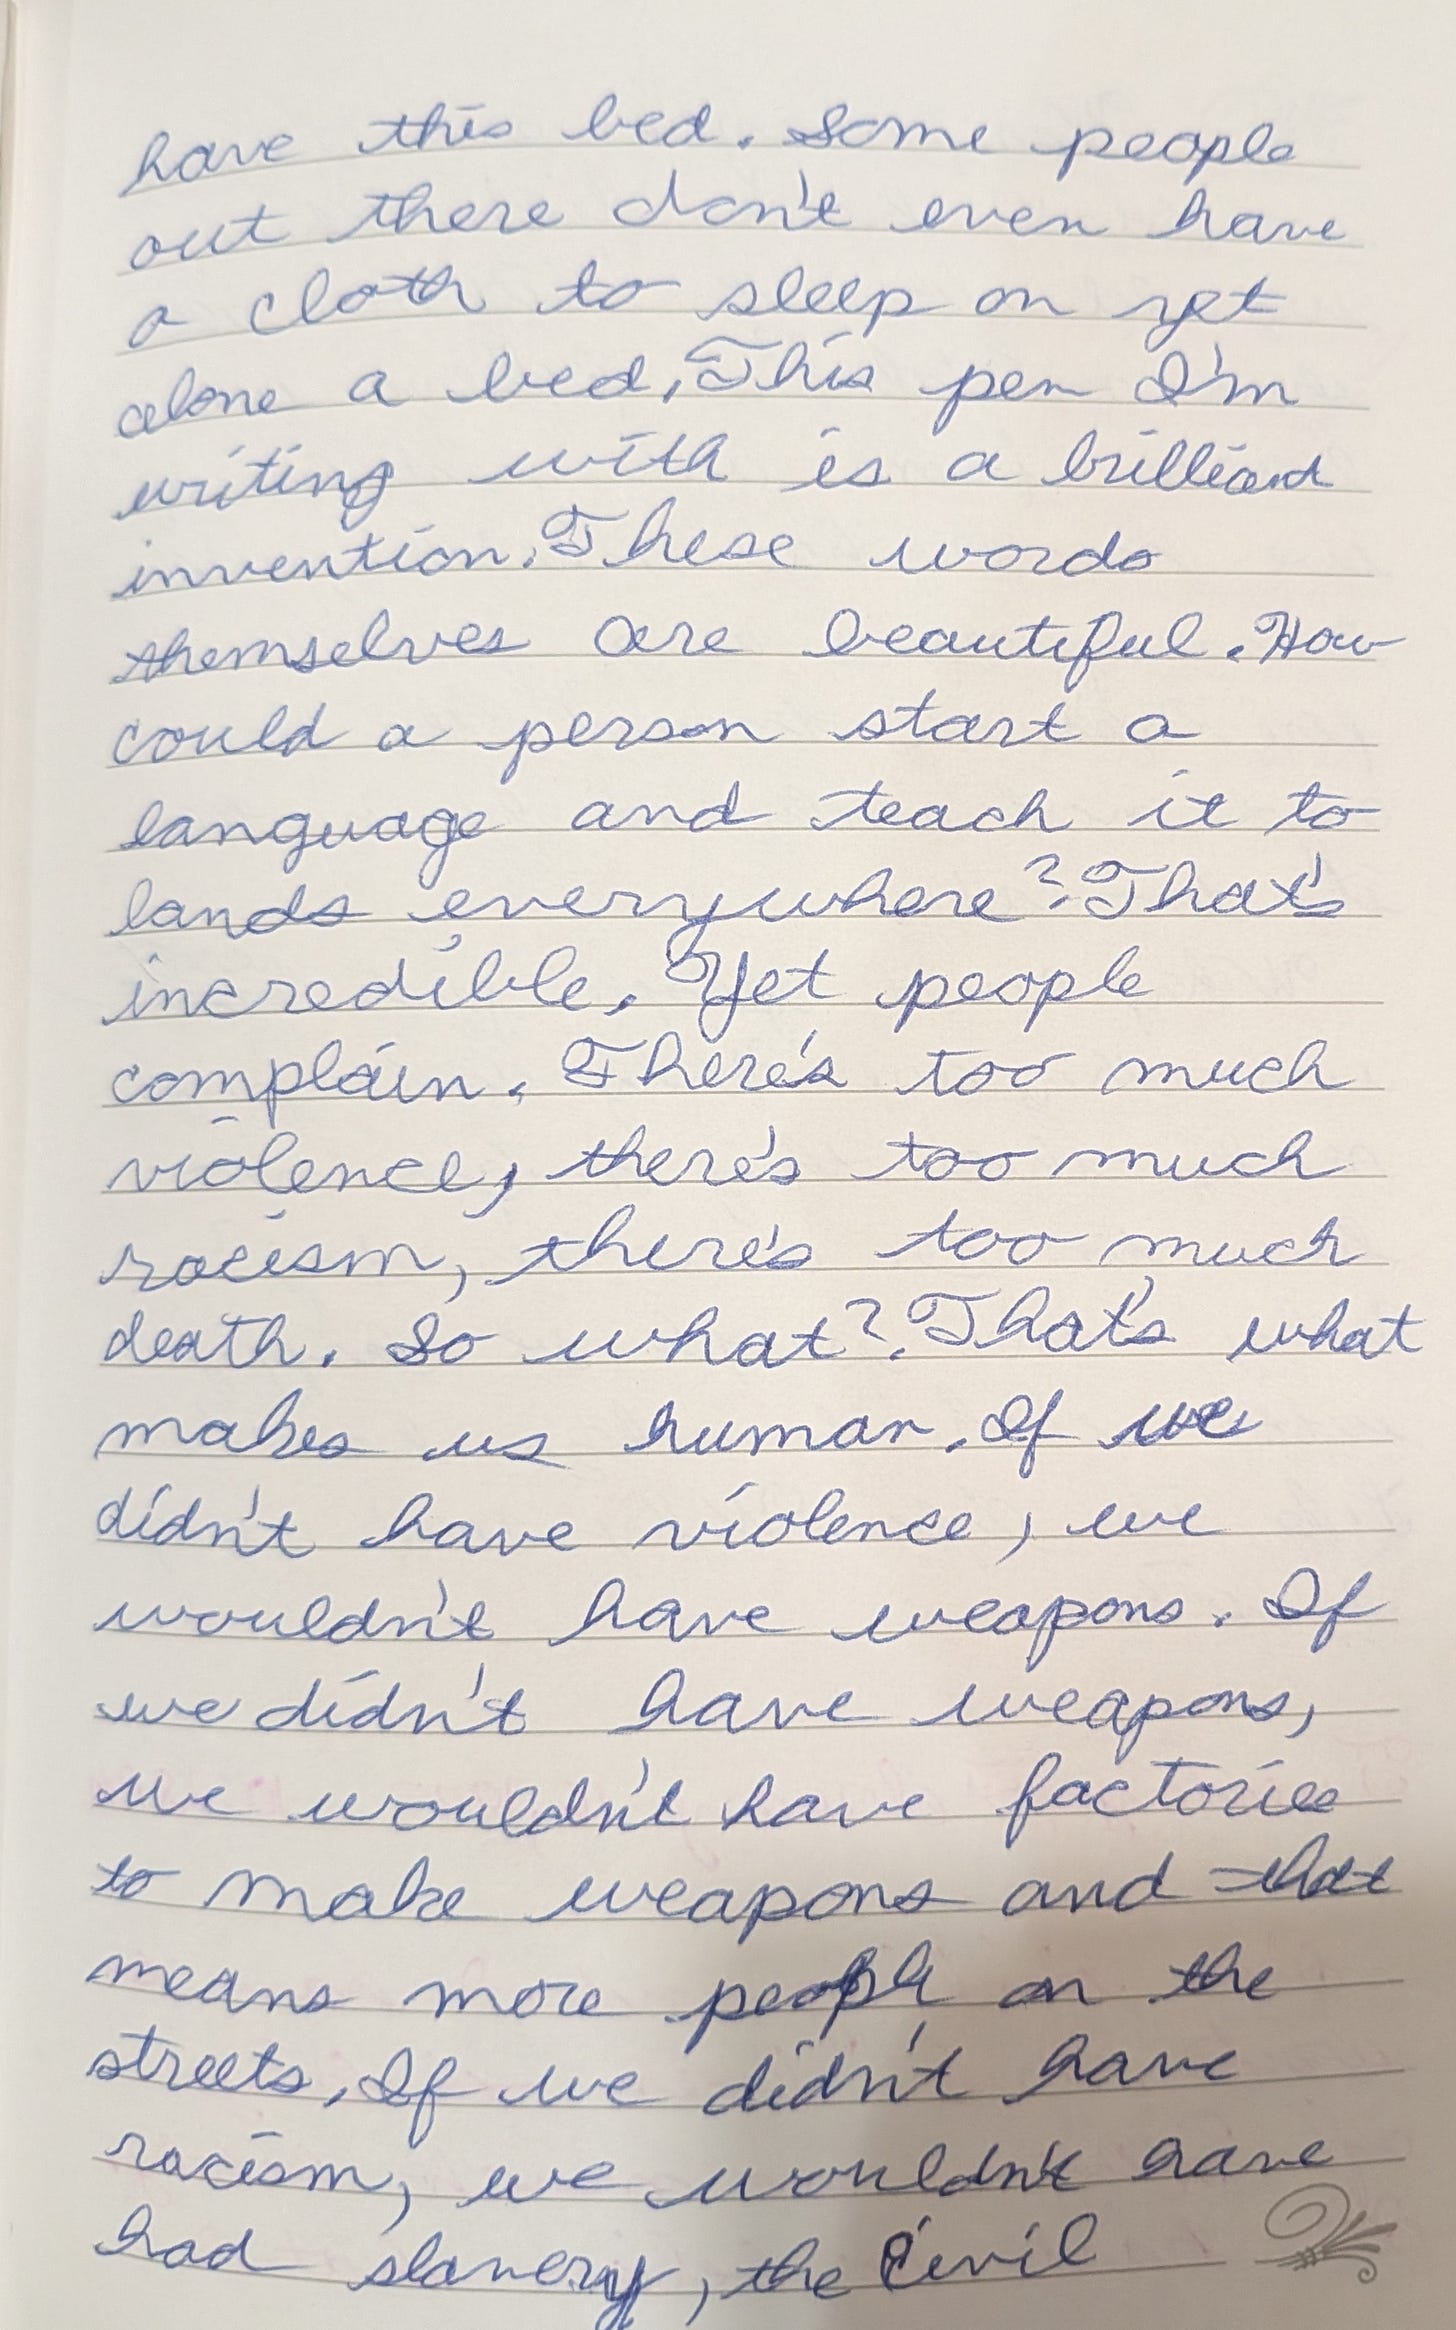 have this bed. Some people
out there don't even have
a cloth to sleep on yet
alone a bed. This pen I'm
writing with is a brilliant
invention. These words
themselves are beautiful. How
could a person start a
language and teach it to
lands everywhere? That's
incredible. Yet people
complain. There's too much
violence, there's too much
racism, there's too much
death. So what? That's what
makes us human. If we
didn't have violence, we
wouldn't have weapons. If
we didn't have weapons,
we wouldn't have factories
to make weapons and that
means more people on the
streets. If we didn't have
racism, we wouldn't have
had slavery, the Civil